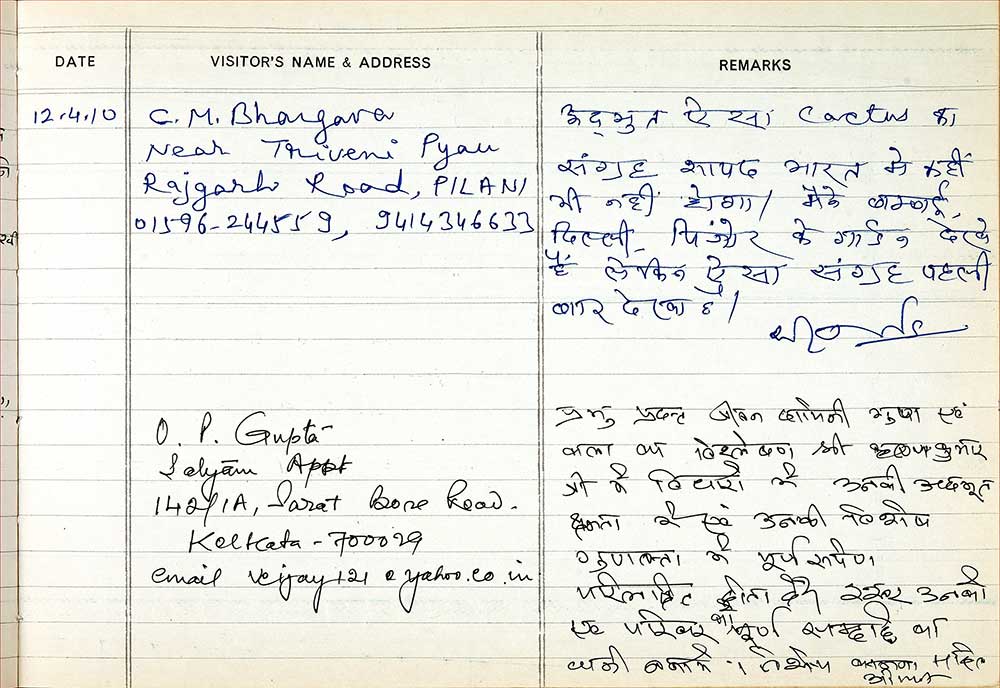 DATE VISITOR'S NAME & ADDRESS REMARKS
12.4.10
C.M. Bhargava
Near Triveni Pyau
Rajgarh Road, PILANI
01596-244559, 9414346633
अद्भुत ऐसा Cactus का
संग्रह शायद भारत मे कहीं
भी नहीं होगा। मैने बम्बई,
दिल्ली, पिंजोर के गार्डन देखे
हैं लेकिन ऐसा संग्रह पहली
बार देखा है।
O. P. Gupta
Satyam Appt
142/1A, Sarat Bose Road.
Kolkata - 700029
email vejjay121@yahoo.co.in
प्रभु प्रदत्त जीवन एवं
कला का विश्लेषण श्री
जी के विचारों में उनकी अद्भुत
क्षमता में एवं उनकी विशेष
गुणवत्ता में पूर्ण रूपेण
होता है ईश्वर उनको
एवं परिवार को पूर्ण का
धनी बनावे।